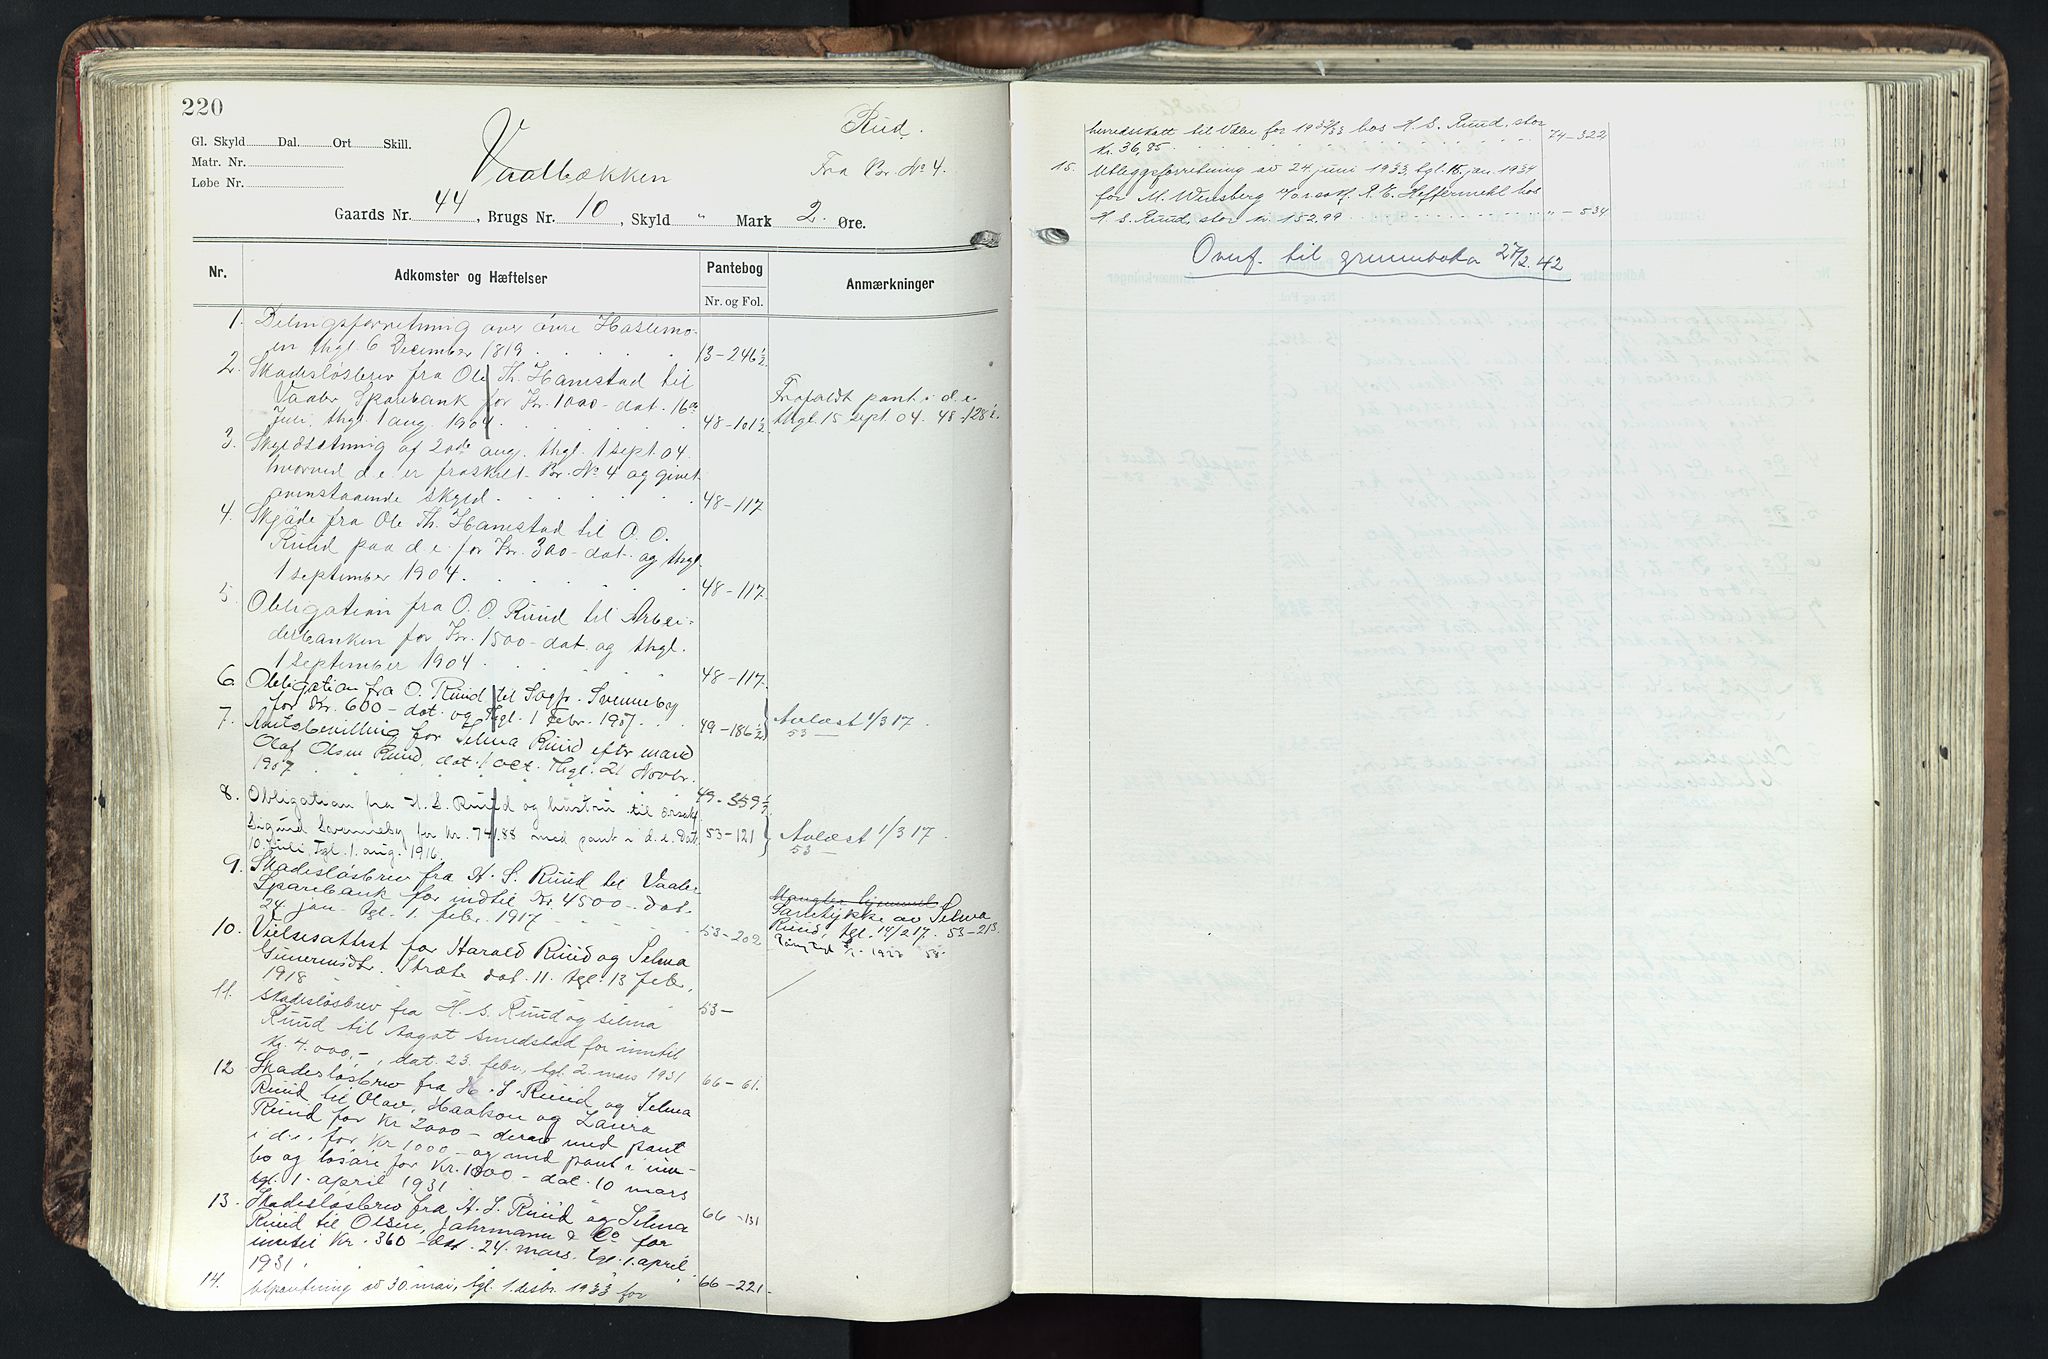 220
Rud.
Gl. Skyld Dal. Ort Skill.
Matr. Nr.
Løbe Nr.
Vaalbækken
Fra Br. No 4.
Gaards Nr. 44, Brugs Nr. 10, Skyld " Mark 2 Øre.
Nr.
Adkomster og Hæftelser
Pantebog
Nr. og Fol.
Anmærkninger
1. Delingsforretning over övre Haslemo-
en thgl. 6 December 1819 13-246½
2. Skadesløsbrev fra Ole Th. Hamstad til
Vaaler Sparebank for Kr. 1000- dat. 16de
Juli, thgl. 1 aug. 1904 48-101½
Frafaldt pant i d.e.
thgl. 15 sept. 04. 48-128½
3. Skyldsetning af 20de aug. thgl. 1 sept. 04.
hvorved d.e. er fraskilt Br. No 4 og givet
ovenstaaende skyld. 48-117
4. Skjøde fra Ole Th. Hamstad til O. O.
Ruud paa d.e. for Kr. 300- dat. og thgl.
1 september 1904. 48-117
5. Obligation fra O. O. Ruud til Arbei-
derbanken for Kr. 1500- dat. og thgl.
1 september 1904. 48-117.
6. Obligation fra O. Ruud til Sogpr. Svenneby
for Kr. 600- dat. og thgl. 1 Febr. 1907. 49-186½
Avlæst 1/3 17.
53—
7. Amtsbevilling for Selma Ruud efter mand
Olaf Olsen Ruud, dat. 1 oct. Thgl. 21 Novbr.
1907 49-359½
8. Obligation fra H. S. Ruud og hustru til
Sigurd Svenneby for Kr. 741.88 med pant i d.e. Dat.
10. Juli, Tgl. 1. aug. 1916. 53-121
Avlæst 1/3 17.
53—
9. Skadesløsbrev fra H. S. Ruud til Vaaler
Sparebank for indtil Kr. 4500- dat.
24. jan. tgl. 1. febr. 1917 53-202
Mangler hjemmel.
Samtykke av Selma
Ruud, tgl. 14/2 17. 53-213.
10. Vielsesattest for Harald Ruud og Selma
Strøte dat. 11. tgl. 13 febr.
1918 53-
11. Skadesløsbrev fra H. S. Ruud og Selma
Ruud til Aagot Smedstad for inntil
Kr. 4.000,-, dat. 23. febr., tgl. 2. mars 1931 66-61.
12 Skadesløsbrev fra H. S. Ruud og Selma
Ruud til Olav, Haakon og Laura
Ruud for Kr 2000- derav med pant
i d.e. for Kr 1000- og med pant i inn-
bo og løsøre for Kr. 1000- dat. 10 mars
tgl. 1. april 1931 66-131
13. Skadesløsbrev fra H. S. Ruud og Selma
Ruud til Olsen, Jahrmann & Co for
inntil Kr. 360- dat. 24. mars. tgl. 1. april
1931. 66-221.
14. Utpantning av 30. mai, tgl. 1. desbr. 1933 for
herredskatt til Våler for 1932/33 hos H. S. Ruud, stor
Kr. 36,85 74-322
15. Utleggsforretning av 24. juni 1933, tgl. 15. jan. 1934
for M. Wensberg v/orsakf. R. E. Heftermehl hos
H. S. Ruud, stor kr. 152,99 "-534
Overf. til grunnboka 27/2. 42